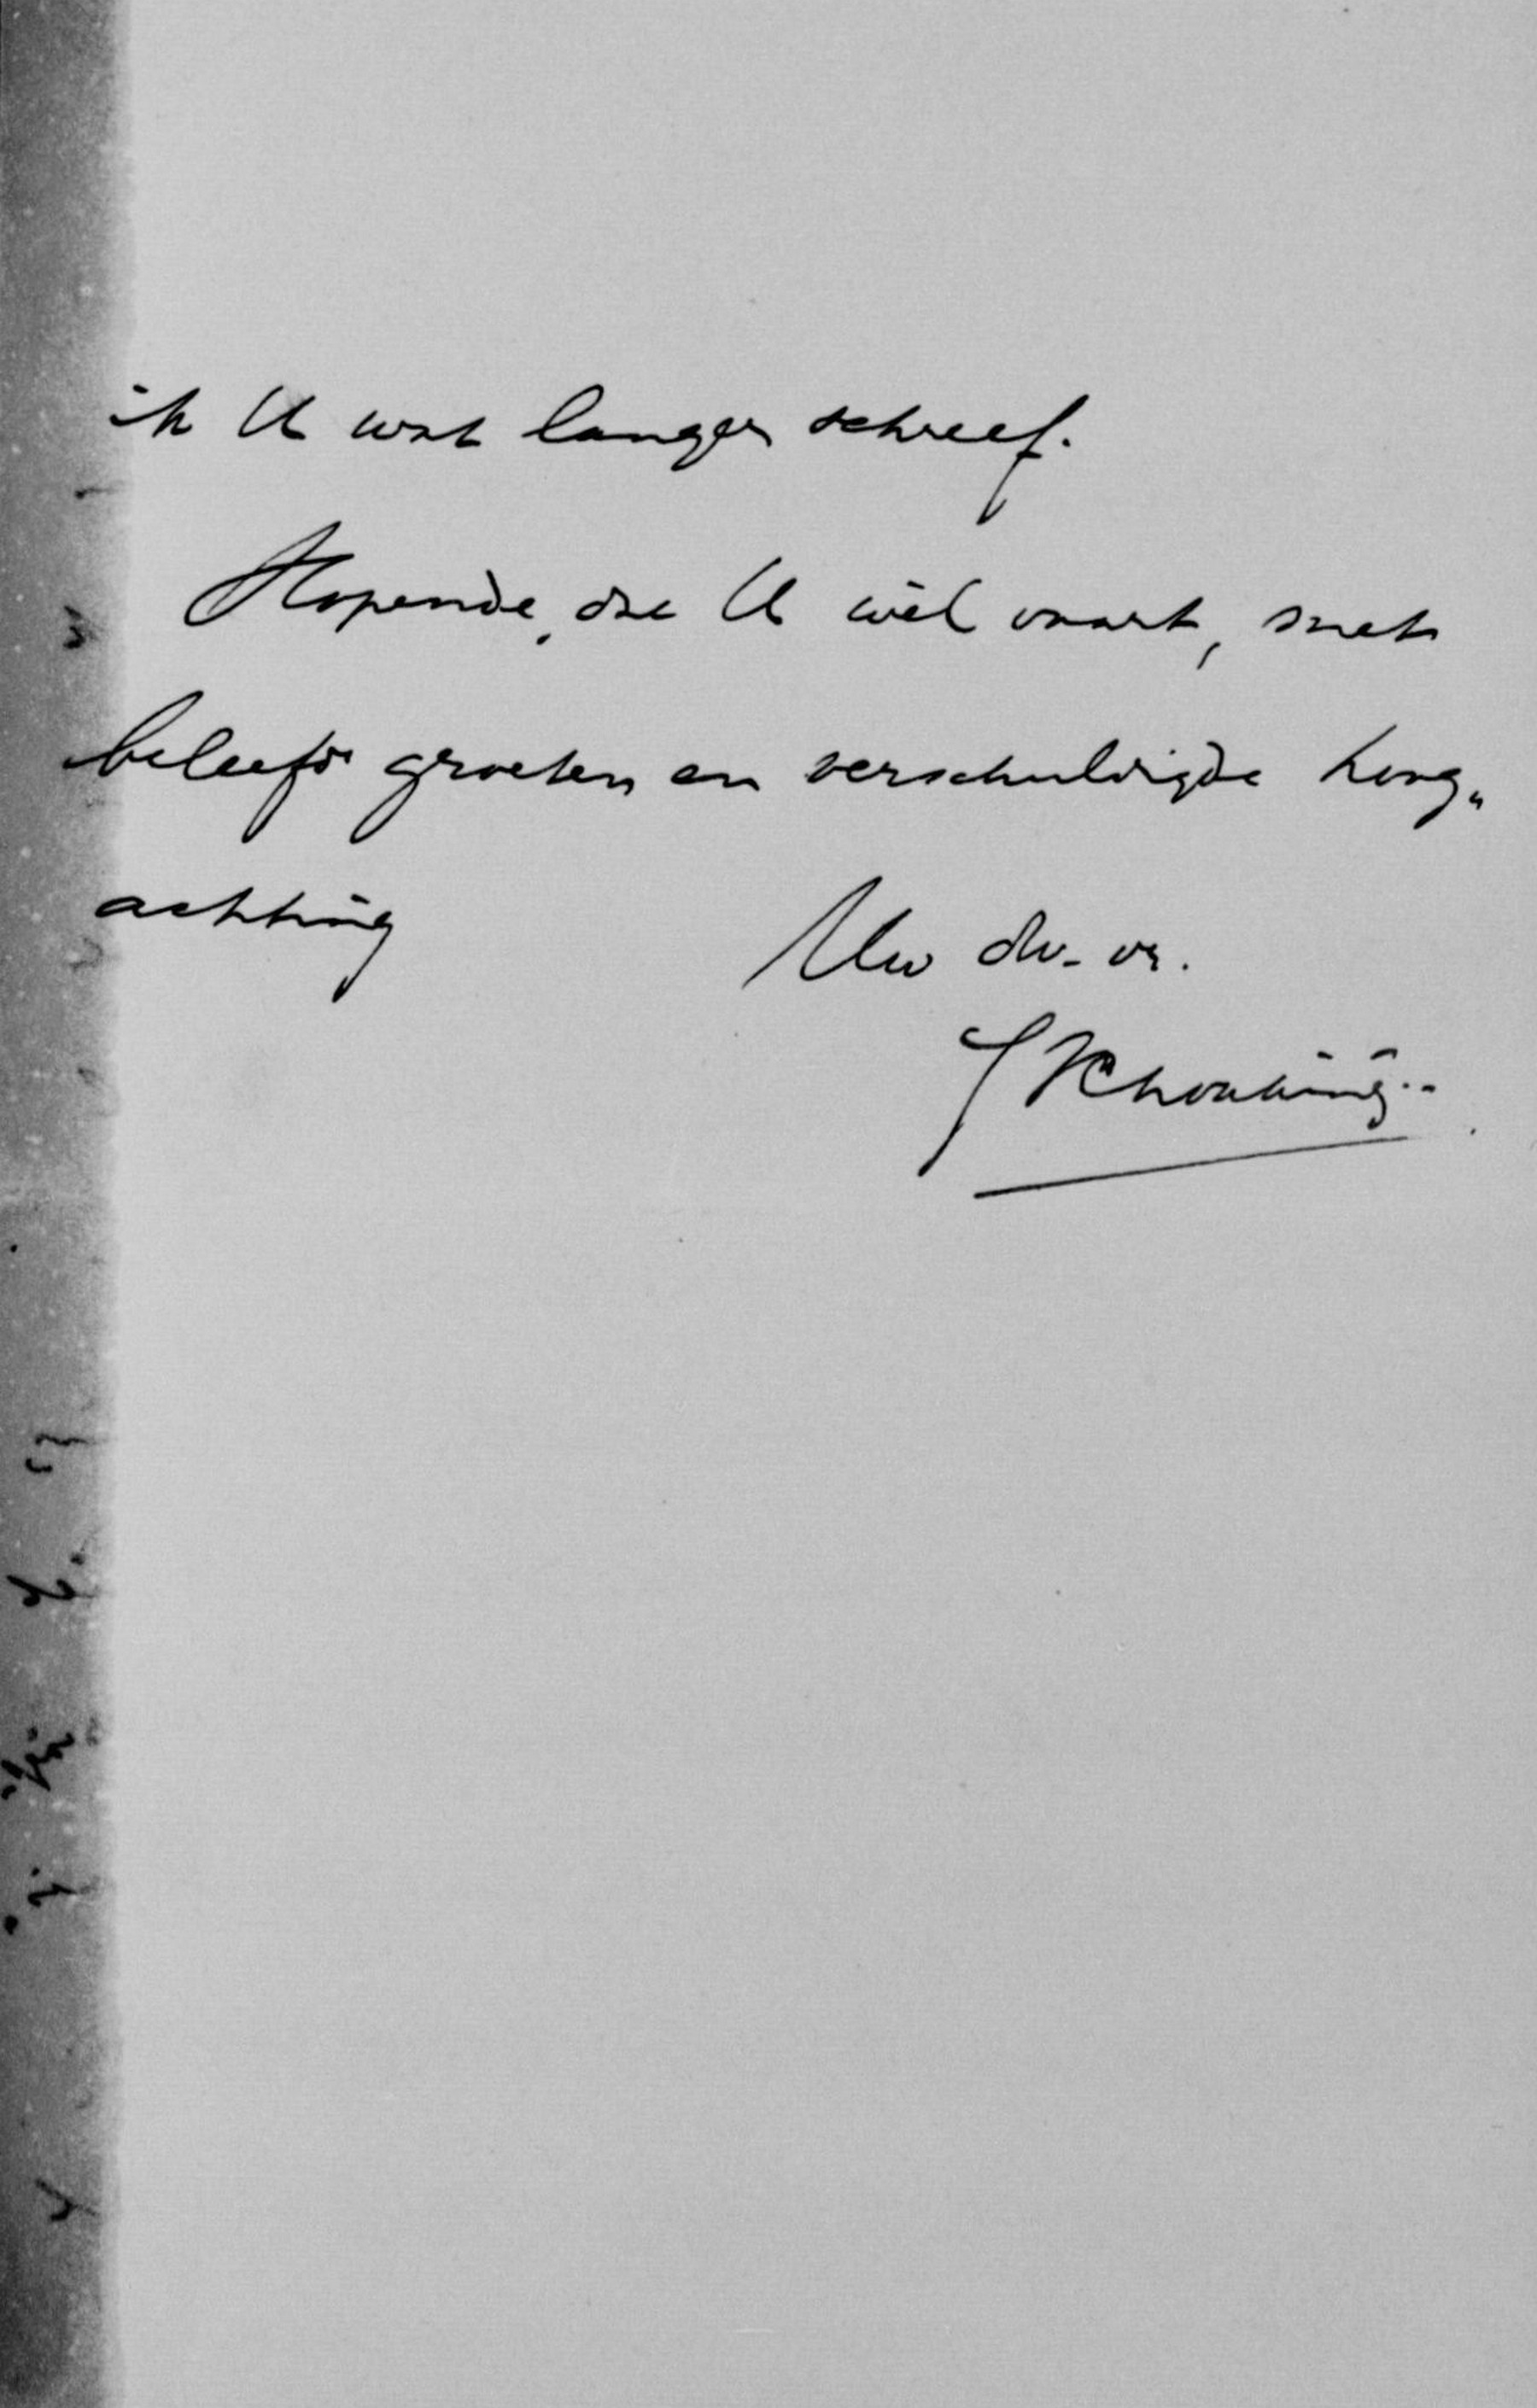 ik U wat langer schreef.
Hopende, dat U wèl vaart, met
beleefde groeten en verschuldigde hoog„
achting
Uw dw. dr.